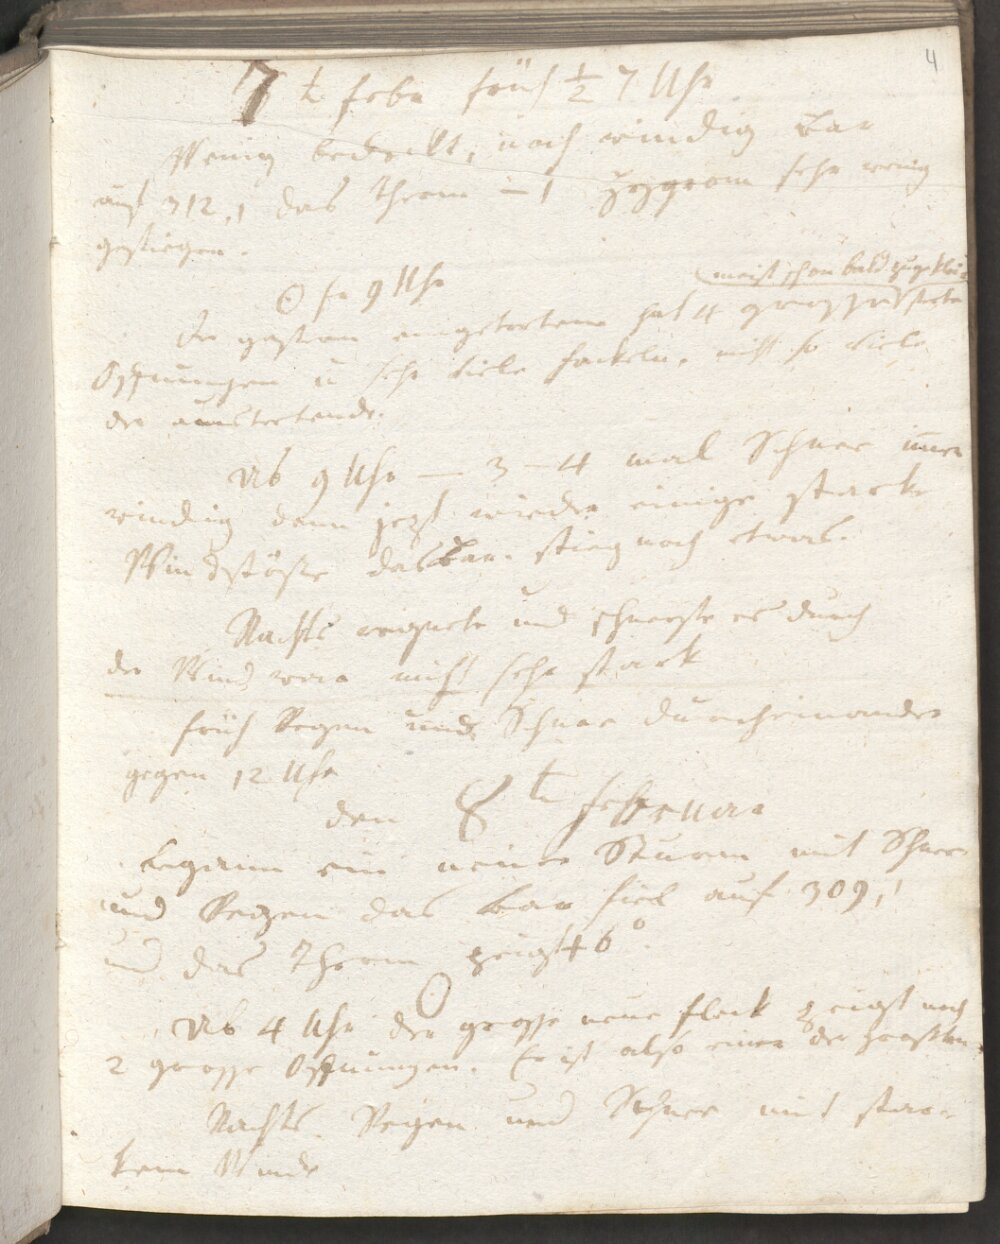 4
7 t Febr früh ½ 7 Uhr
Wenig bedeckt, noch windig Bar
auf 312,1 das Therm – 1 Hygrom sehr wenig
gestiegen.
☉ fr 9 Uhr
(meist schon bald
der gestern eingetretene hat 4 grosse
Öffnungen u sehr viele Fackeln, nicht so viele
der austretende.
Ab 9 Uhr — 3–4 mal Schnee immer
windig denn jezt wieder einige starke
Windstöße das Bar. stieg noch etwas.
Nachts regnete und schneyte es durch
der Wind war nicht sehr stark
früh Regen und Schnee durcheinander
gegen 12 Uhr
den 8 t Februar
begann ein neuer Sturm mit Schnee
und Regen das Bar fiel auf 309,1
und das Therm zeigt + 6°.
Ab 4 Uhr der grosse neue Fleck zeigt noch
2 grosse Öffnungen. Er ist also einer der
Nachts Regen und Schnee mit star-
kem Winde